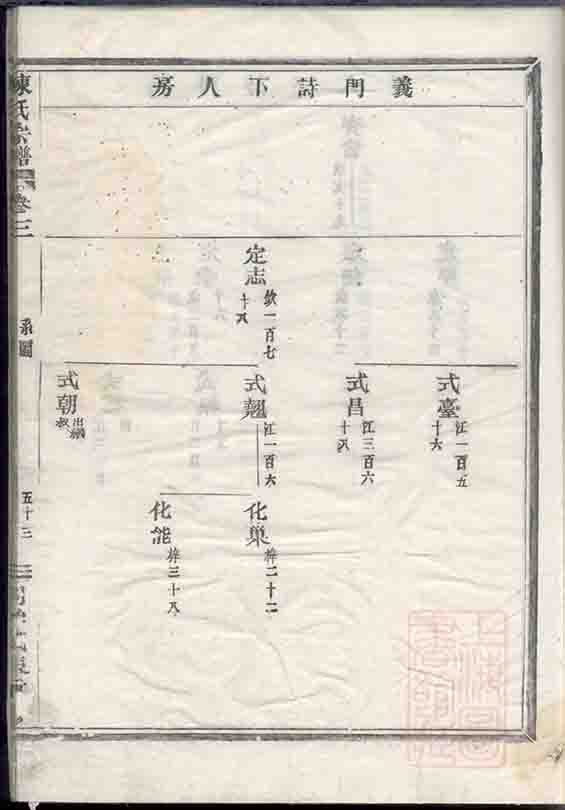 義門詩下人房
定志
欽一百七十八
式臺
江一百五十六
式昌
江三百六十八
式翹
江一百六
式朝
出嗣叔
化巢
梓二十二
化能
梓三十八
陳氏宗譜
卷三
系圖
五十三